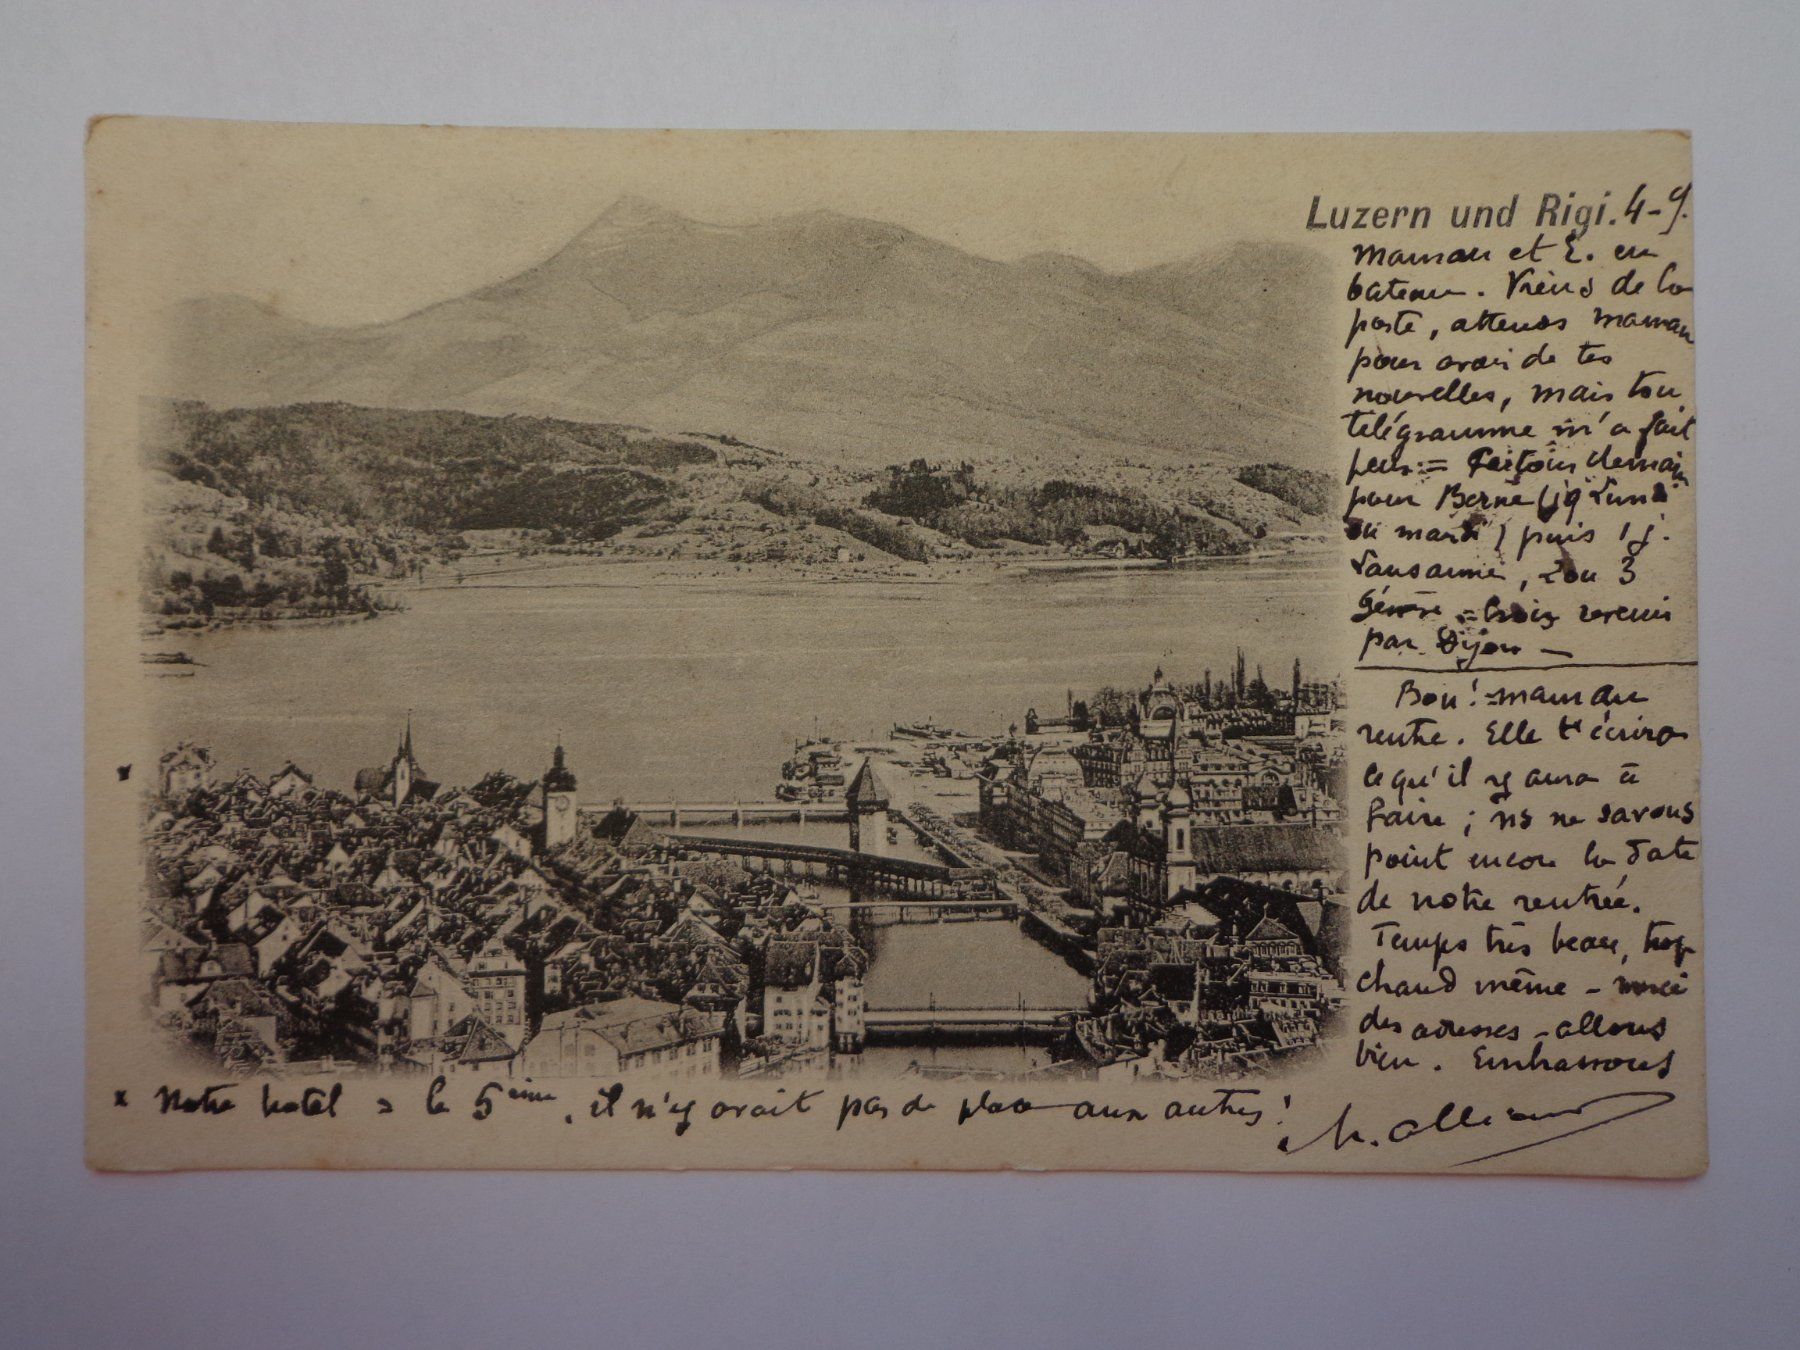 Luzern und Rigi. 4-9.
Maman et E. en
bateau. Viens de la
poste, attends maman
pour avoir de tes
nouvelles, mais ton
télégramme m'a fait
peur = demain
pour Berne ( lundi
ou mardi ) puis 1 j.
Lausanne, 2 ou 3
Genève = revenir
par Dijon —
Bon! - maman
rentre. Elle t'écrira
ce qu'il y aura à
faire ; ns ne savons
point encore la date
de notre rentrée.
Temps très beau, trop
chaud même - merci
des adresses - allons
bien. Embrassons
x Notre hotel = le 5ème, il n'y avait pas de place aux autres!